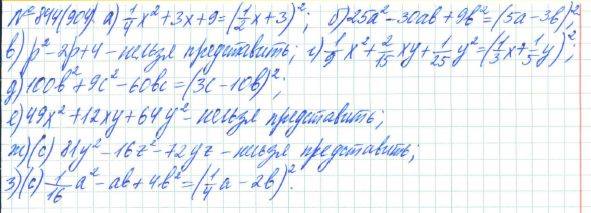 № 844(904). а) 1/4 x² + 3x + 9 = (1/2 x + 3)²; б) 25a² - 30ab + 9b² = (5a - 3b)²;
в) p² - 2p + 4 - нельзя представить; г) 1/9 x² + 2/15 xy + 1/25 y² = (1/3 x + 1/5 y)²;
д) 100b² + 9c² - 60bc = (3c - 10b)²;
е) 49x² + 12xy + 64y² - нельзя представить;
ж) (с) 81y² - 16z² + 72yz - нельзя представить;
з) (с) 1/16 a² - ab + 4b² = (1/4 a - 2b)².